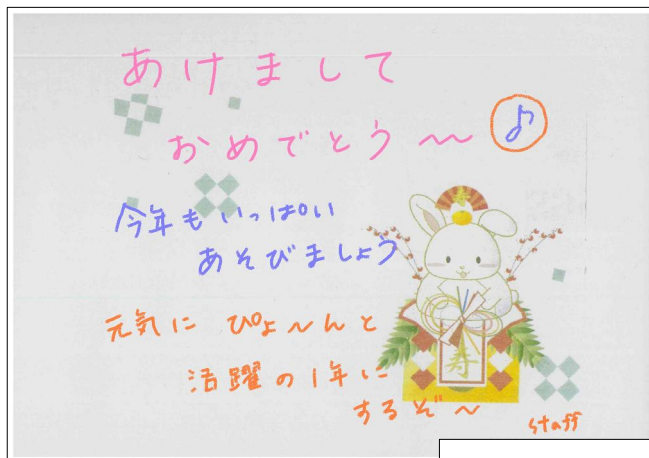 あけまして
おめでとう～～♪
今年もいっぱい
あそびましょう
元気に ぴょ～んと
活躍の1年に
するぞ～
寿
staff